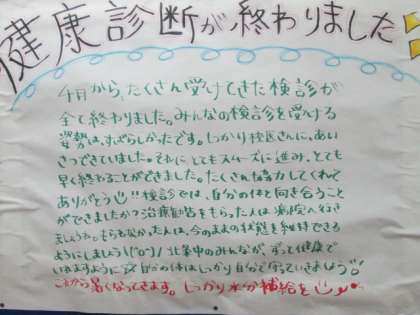 健康診断が終わりました
4月から、たくさん受けてきた検診が
全て終わりました。みんなの検診を受ける
姿勢は、すばらしかったです。しっかり校医さんに、あい
さつできていました。それに、とてもスムーズに進み、とても
早く終わることができました。たくさん協力してくれて
ありがとう!! 検診では、自分の体と向き合うこと
ができましたか?治療勧告をもらった人は病院へ行き
ましょうね。もらわなかった人は、今のままの状態を維持できる
ようにしましょう\(^o^)/ 北辛中のみんなが、ずっと健康で
いれますように☆自分の体はしっかり自分で守っていきましょう!!
これから暑くなってきます。しっかり水分補給を